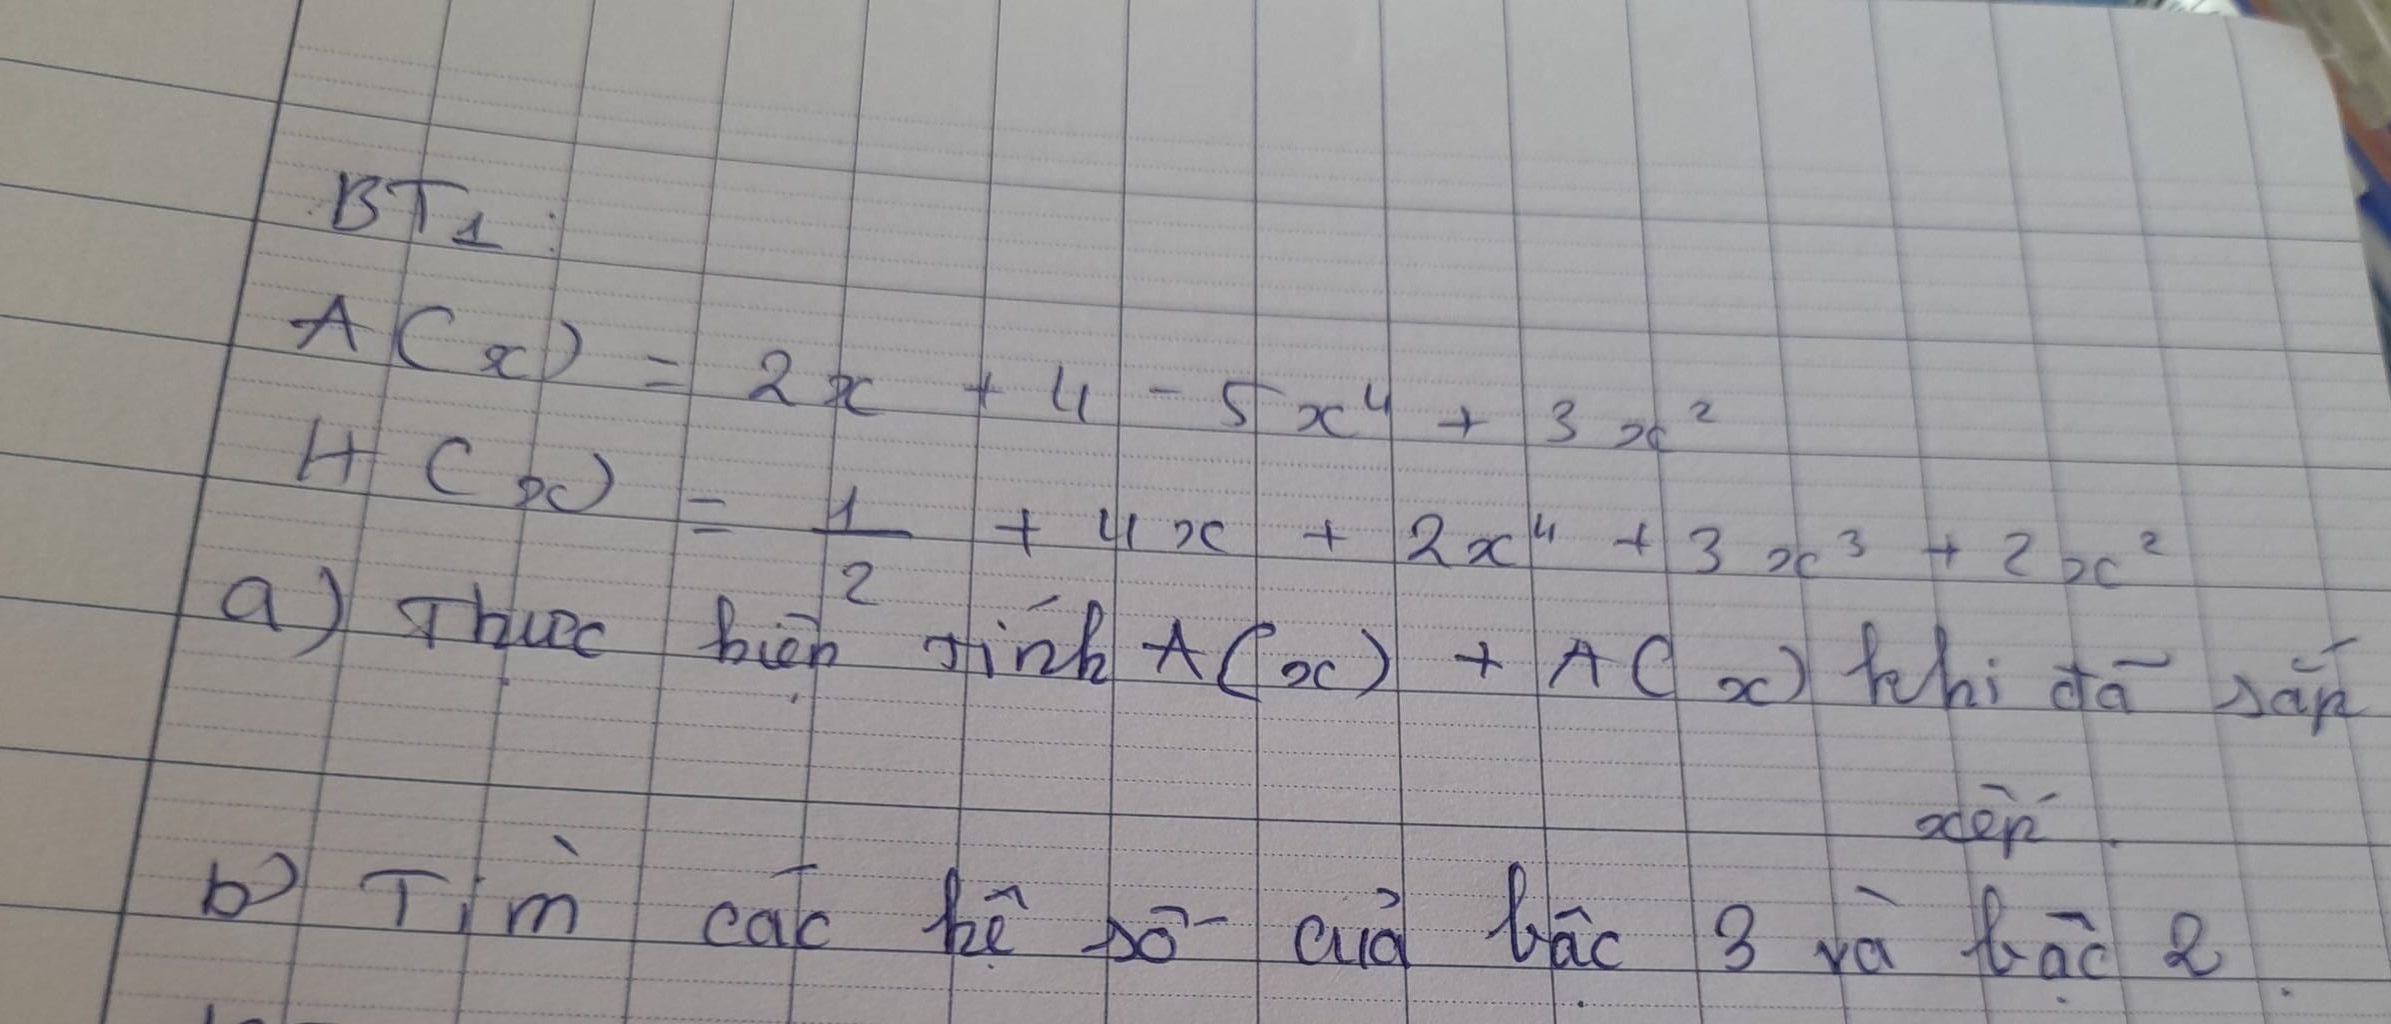 BT1:
A(x) = 2x + 4 - 5x⁴ + 3x²
H(x) = 1/2 + 4x + 2x⁴ + 3x³ + 2x²
a) Thực hiện tính A(x) + A(x) khi đã sắp
xếp.
b) Tìm các hệ số của bậc 3 và bậc 2.